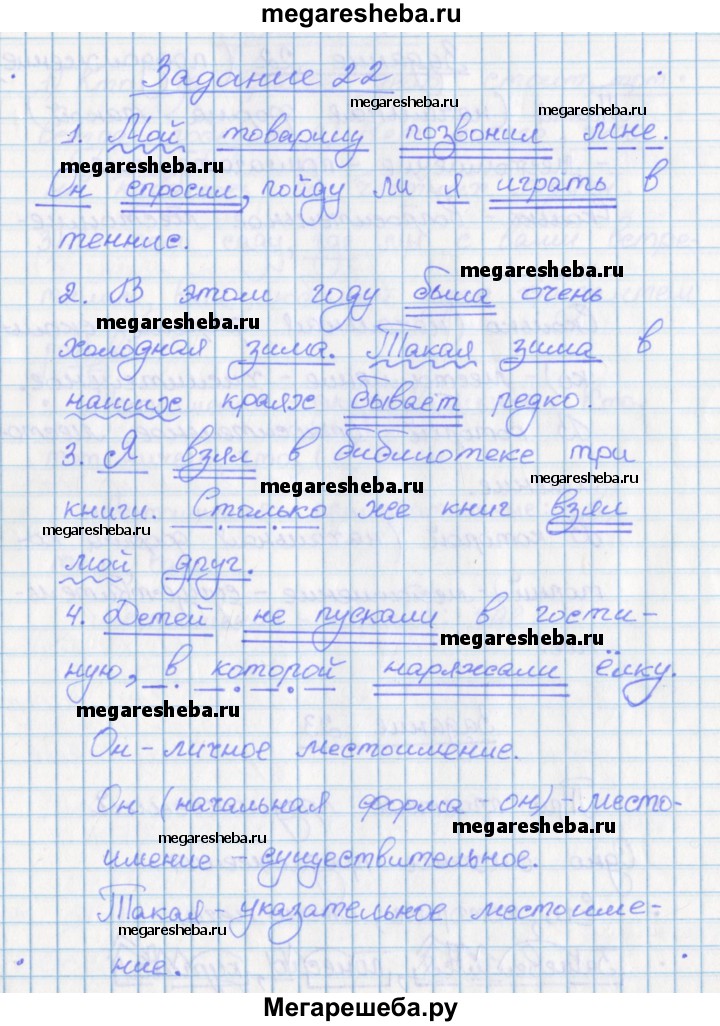 megaresheba.ru
Задание 22
megaresheba.ru
megaresheba.ru
1. Мой товарищ позвонил мне.
megaresheba.ru
Он спросил, пойду ли я играть в
теннис.
megaresheba.ru
2. В этом году была очень
megaresheba.ru
холодная зима. Такая зима в
наших краях бывает редко.
3. Я взял в библиотеке три
megaresheba.ru
megaresheba.ru
книги. Столько же книг взял
megaresheba.ru
мой друг.
4. Детей не пускали в гости-
megaresheba.ru
ную, в которой наряжали ёлку.
megaresheba.ru
Он - личное местоимение.
Он (начальная форма - он) - место-
megaresheba.ru
megaresheba.ru
имение - существительное.
Такая - указательное местоиме-
megaresheba.ru
ние.
Мегарешеба.ру